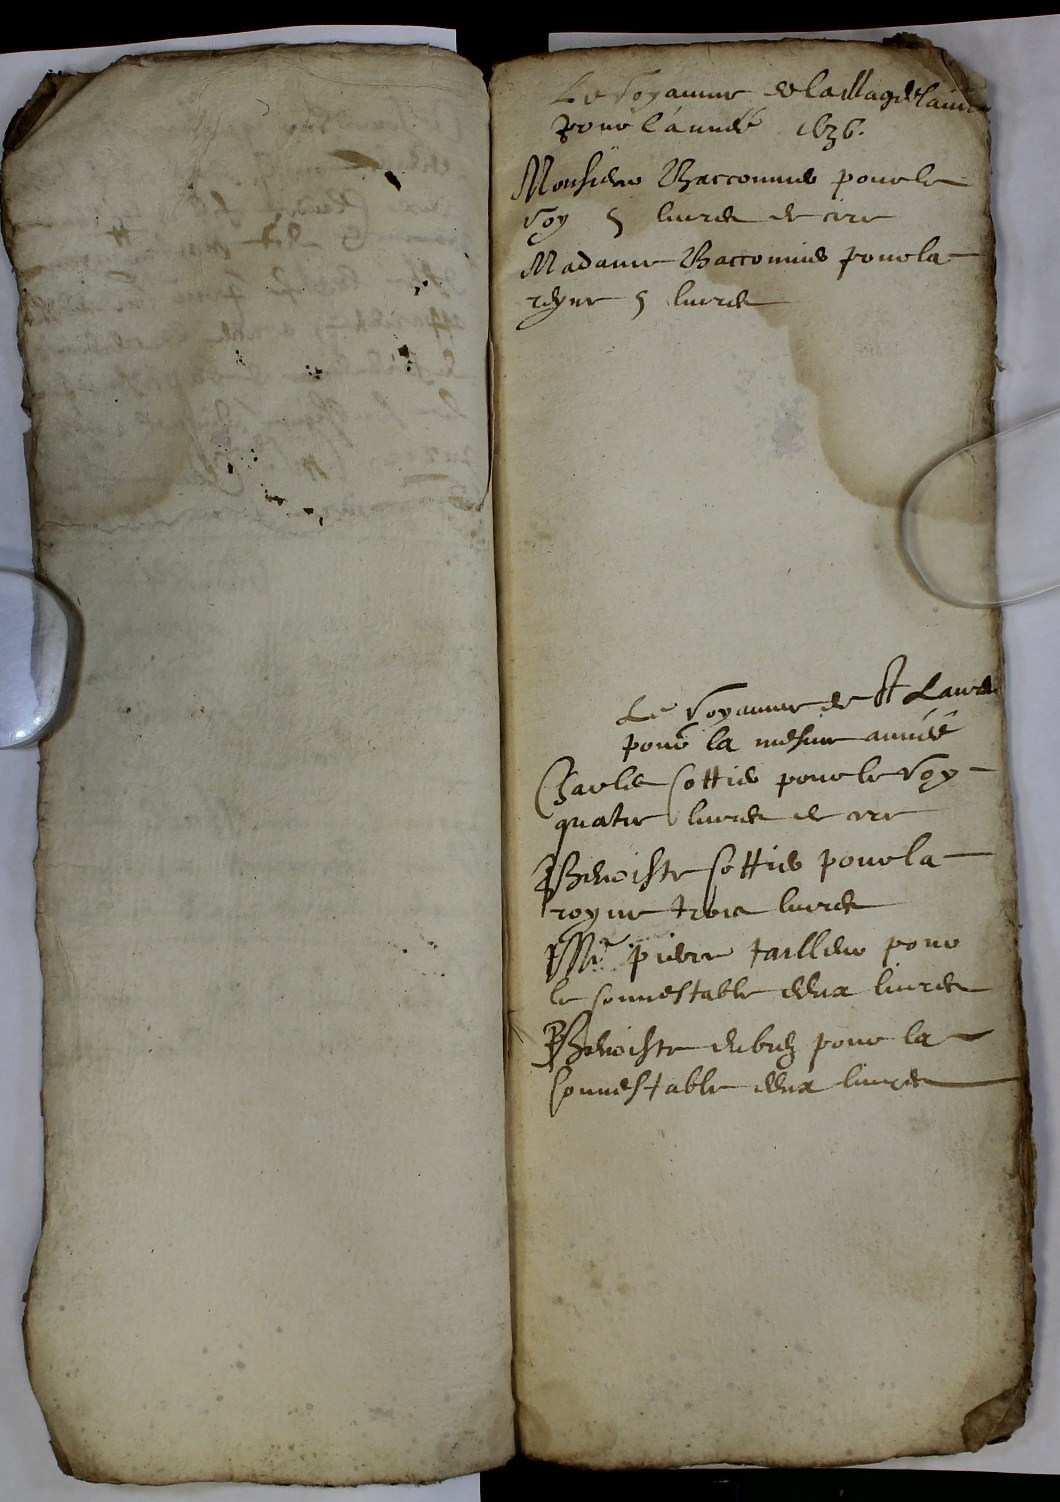 Le Royaume de la Magdelaine
pour l'année 1636.
Monsieur Bacconnier pour le
Roy 5 livres de cire
Madame Bacconnier pour la
reyne 5 livres
Le Royaume de St Laurent
pour la mesme année
Charles Cottier pour le Roy
quatre livres de cire
Benoiste Cottier pour la
royne trois livres
Mr pierre tailleur pour
le connestable deux livres
Benoiste pour la
connestable deux livres